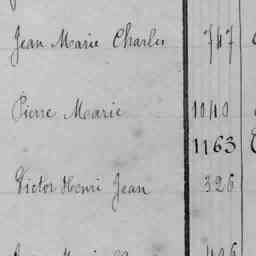 Jean Marie Charles 747
Pierre Marie 1040
1163
Victor Henri Jean 326